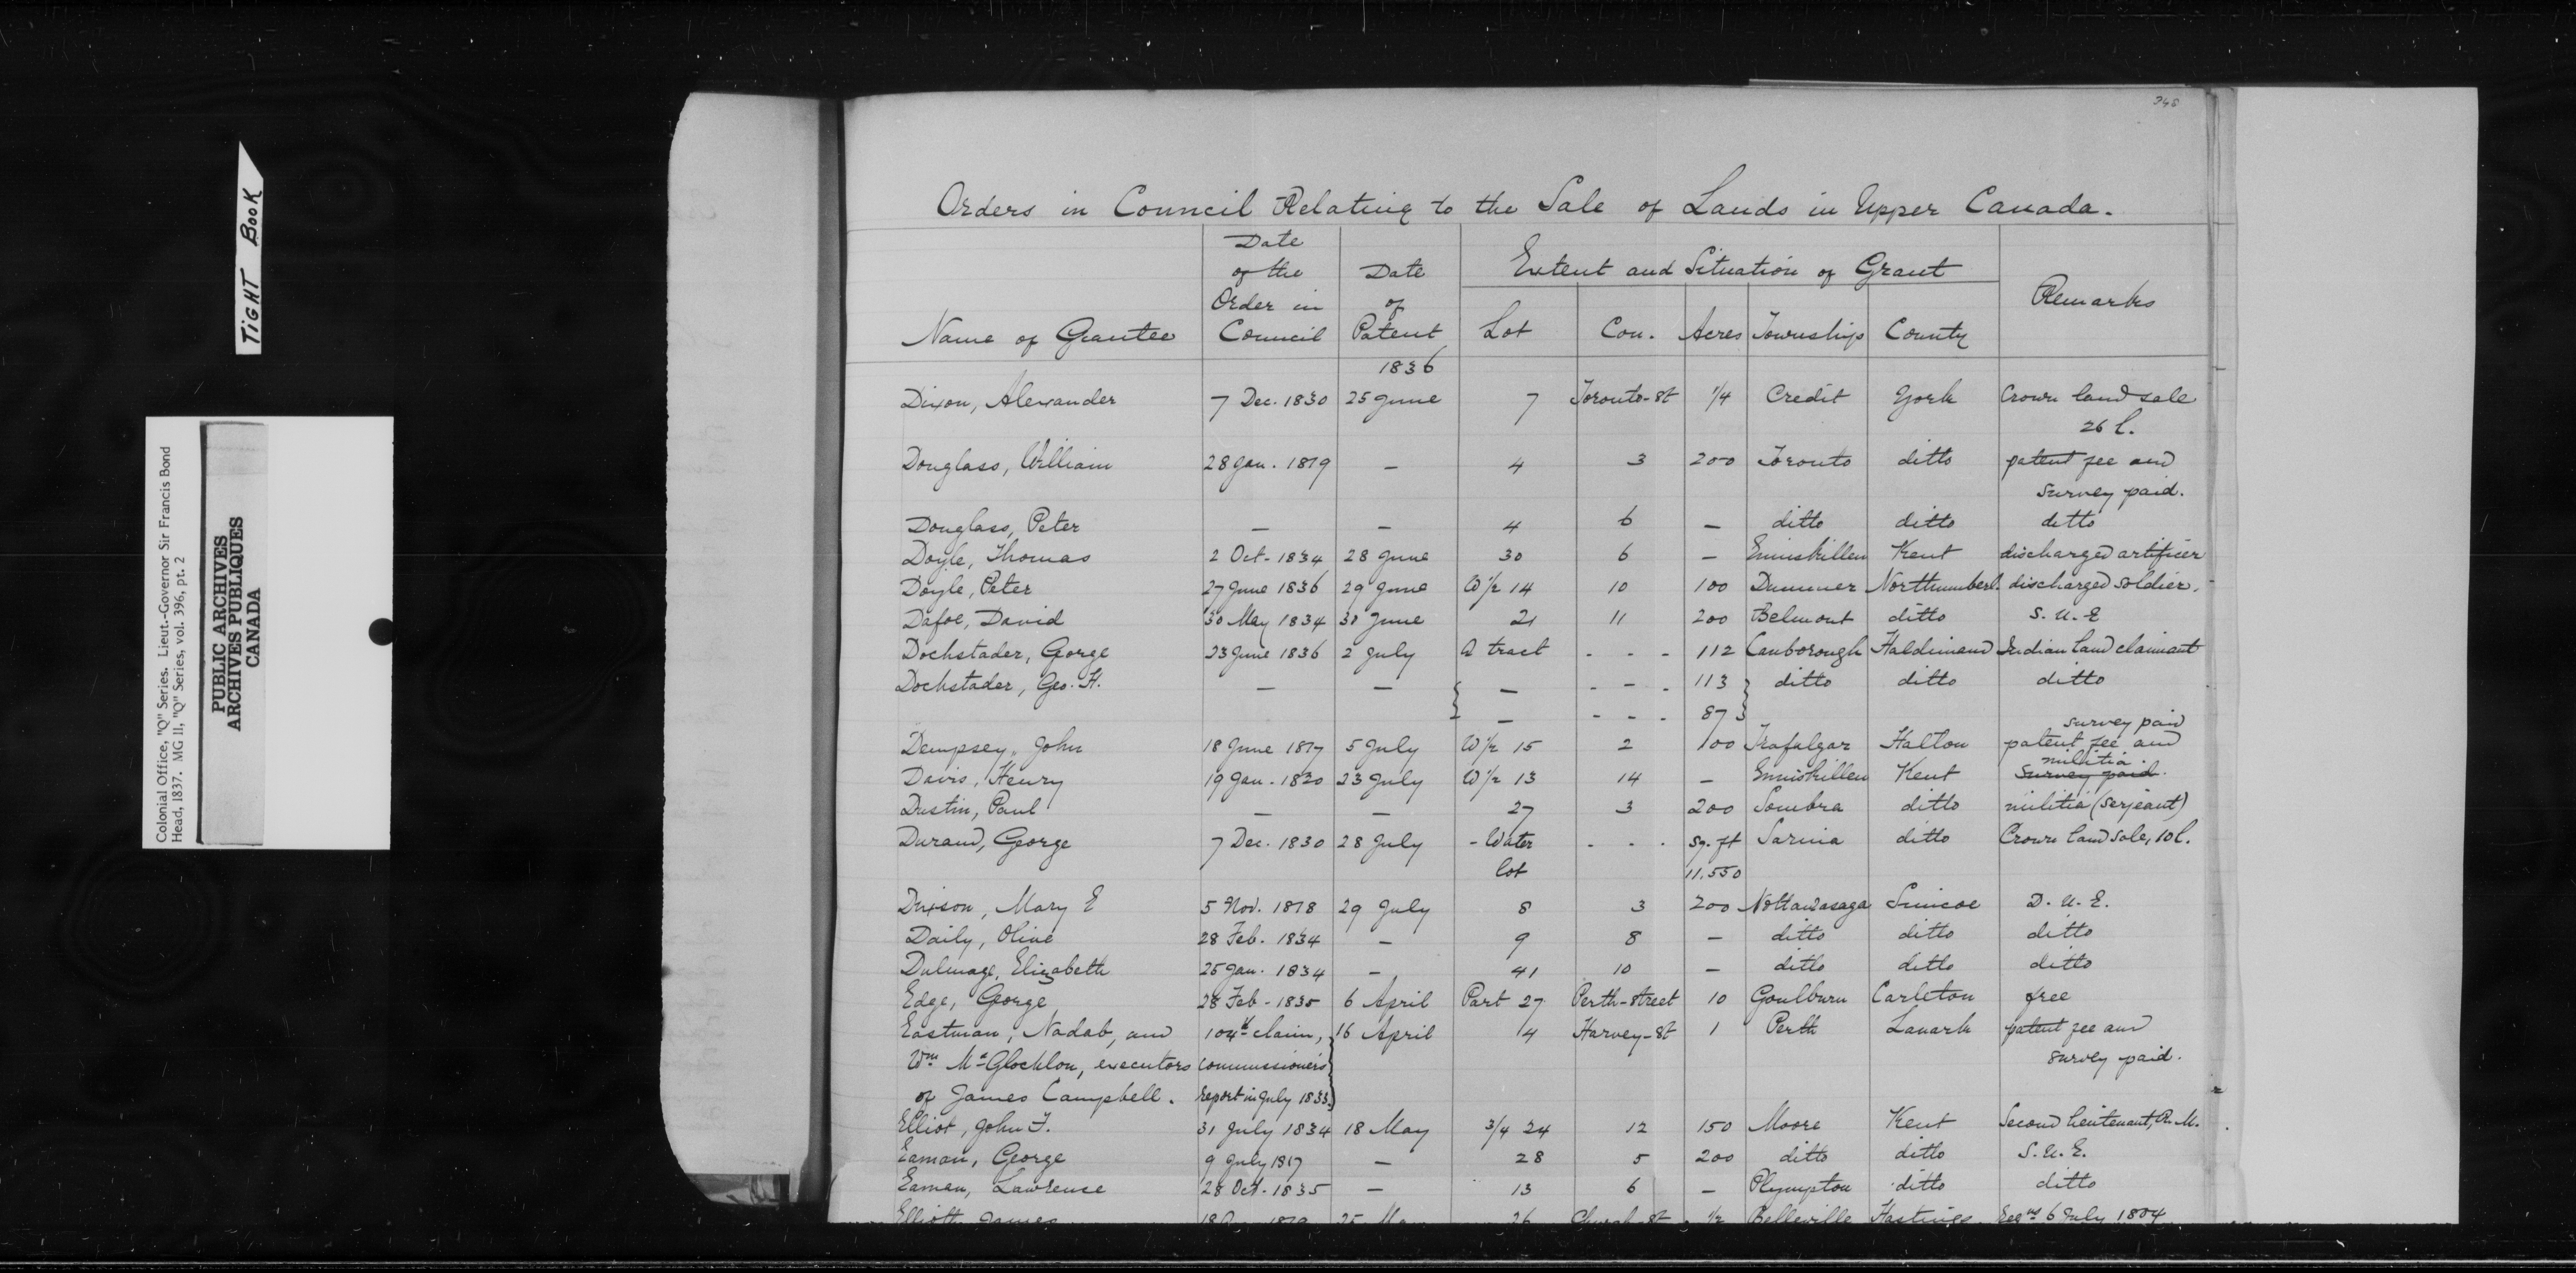 348
TIGHT BOOK
Colonial Office, "Q" Series. Lieut.-Governor Sir Francis Bond
Head, 1837. MG 11, "Q" Series, vol. 396, pt. 2
PUBLIC ARCHIVES
ARCHIVES PUBLIQUES
CANADA
Orders in Council Relating to the Sale of Lands in Upper Canada.
Name of Grantee | Date of the Order in Council | Date of Patent | Extent and Situation of Grant | Remarks
Lot | Con. | Acres | Townships | County
1836
Dixon, Alexander 7 Dec. 1830 25 June 7 Toronto-St 1/4 Credit York Crown land sale
26 l.
Douglass, William 28 Jan. 1819 — 4 3 200 Toronto ditto patent fee and
survey paid.
Douglass, Peter — — 4 6 — ditto ditto ditto
Doyle, Thomas 2 Oct. 1834 28 June 30 6 — Enniskillen Kent discharged artificer
Doyle, Peter 27 June 1836 29 June W 1/2 14 10 100 Dummer Northumberl. discharged soldier.
Dafoe, David 30 May 1834 30 June 21 11 200 Belmont ditto S. U. E
Dochstader, Gorge 23 June 1836 2 July A tract - - - 112 Canborough Haldimand Indian land claimant
Dochstader, Geo. H. — — { — - - - 113 } ditto ditto ditto
— - - - 87
survey paid
Dempsey, John 18 June 1817 5 July W 1/2 15 2 100 Trafalgar Halton patent fee and
militia.
Davis, Henry 19 Jan. 1820 23 July W 1/2 13 14 — Enniskillen Kent survey paid.
Dustin, Paul — — 27 3 200 Sombra ditto militia (serjeant)
Durand, George 7 Dec. 1830 28 July - Water - - - sq. ft Sarnia ditto Crown land sale, 10 l.
lot 11.550
Dixson, Mary E 5 Nov. 1818 29 July 8 3 200 Nottawasaga Simcoe D. U. E.
Daily, Olive 28 Feb. 1834 — 9 8 — ditto ditto ditto
Dulmage, Elizabeth 25 Jan. 1834 — 41 10 — ditto ditto ditto
Edge, George 28 Feb - 1835 6 April Part 27 Perth-street 10 Goulburn Carleton free
Eastman, Nadab, and 104th claim, 16 April 4 Harvey-St 1 Perth Lanark patent fee and
Wm McGlocklon, executors commissioners survey paid.
of James Campbell. report in July 1833
Elliot, John F. 31 July 1834 18 May 3/4 24 12 150 Moore Kent Second lieutenant, R. M.
Eaman, George 9 July 1817 — 28 5 200 ditto ditto S. U. E.
Eaman, Lawrence 28 Oct. 1835 — 13 6 — Plympton ditto ditto
Elliott, James 1819 25 May 26 Church St 1/2 Belleville Hastings 6 July 1804